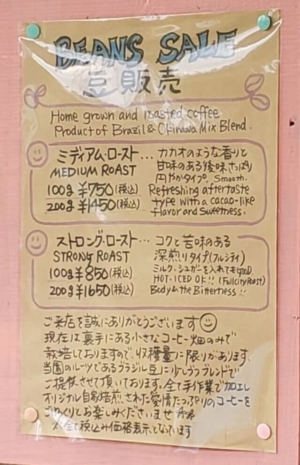 BEANS SALE
豆販売
Home grown and roasted coffee
Product of Brazil & Okinawa Mix Blend.
ミディアム・ロースト…カカオのような香りと
MEDIUM ROAST 甘味のある後味、さっぱり
100g ¥750(税込) 円やかタイプ。Smooth.
200g ¥1450(税込) Refreshing aftertaste
type with a cacao-like
flavor and sweetness.
ストロング・ロースト…コクと苦味のある
STRONG ROAST 深煎りタイプ(フルシティ)
100g ¥850(税込) ミルク・シュガーを入れてもgood
200g ¥1650(税込) HOT・ICED OK!! (Full city Roast)
Body & the Bitterness!!
ご来店を誠にありがとうございます
現在は裏手にある小さなコーヒー畑のみで
栽培しておりますので、収穫量に限りがあります。
当園のルーツであるブラジル豆に少しづつブレンドで
ご提供させて頂いております。全て手作業で加工し
オリジナル自家焙煎された愛情たっぷりのコーヒーを
ごゆっくりとお楽しみくださいませ
全て税込み価格表示となっています